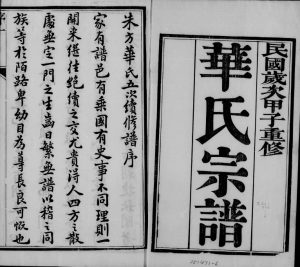 民國歲次甲子重修
華氏宗譜
朱方華氏五次續修譜序
家有譜邑有乘國有史事不同理則一
開來繼往絕續之交尤貴得人四方之散
處無定一門之生齒日繁無譜以稽之同
族等於陌路卑幼目為尊長良可慨也
序